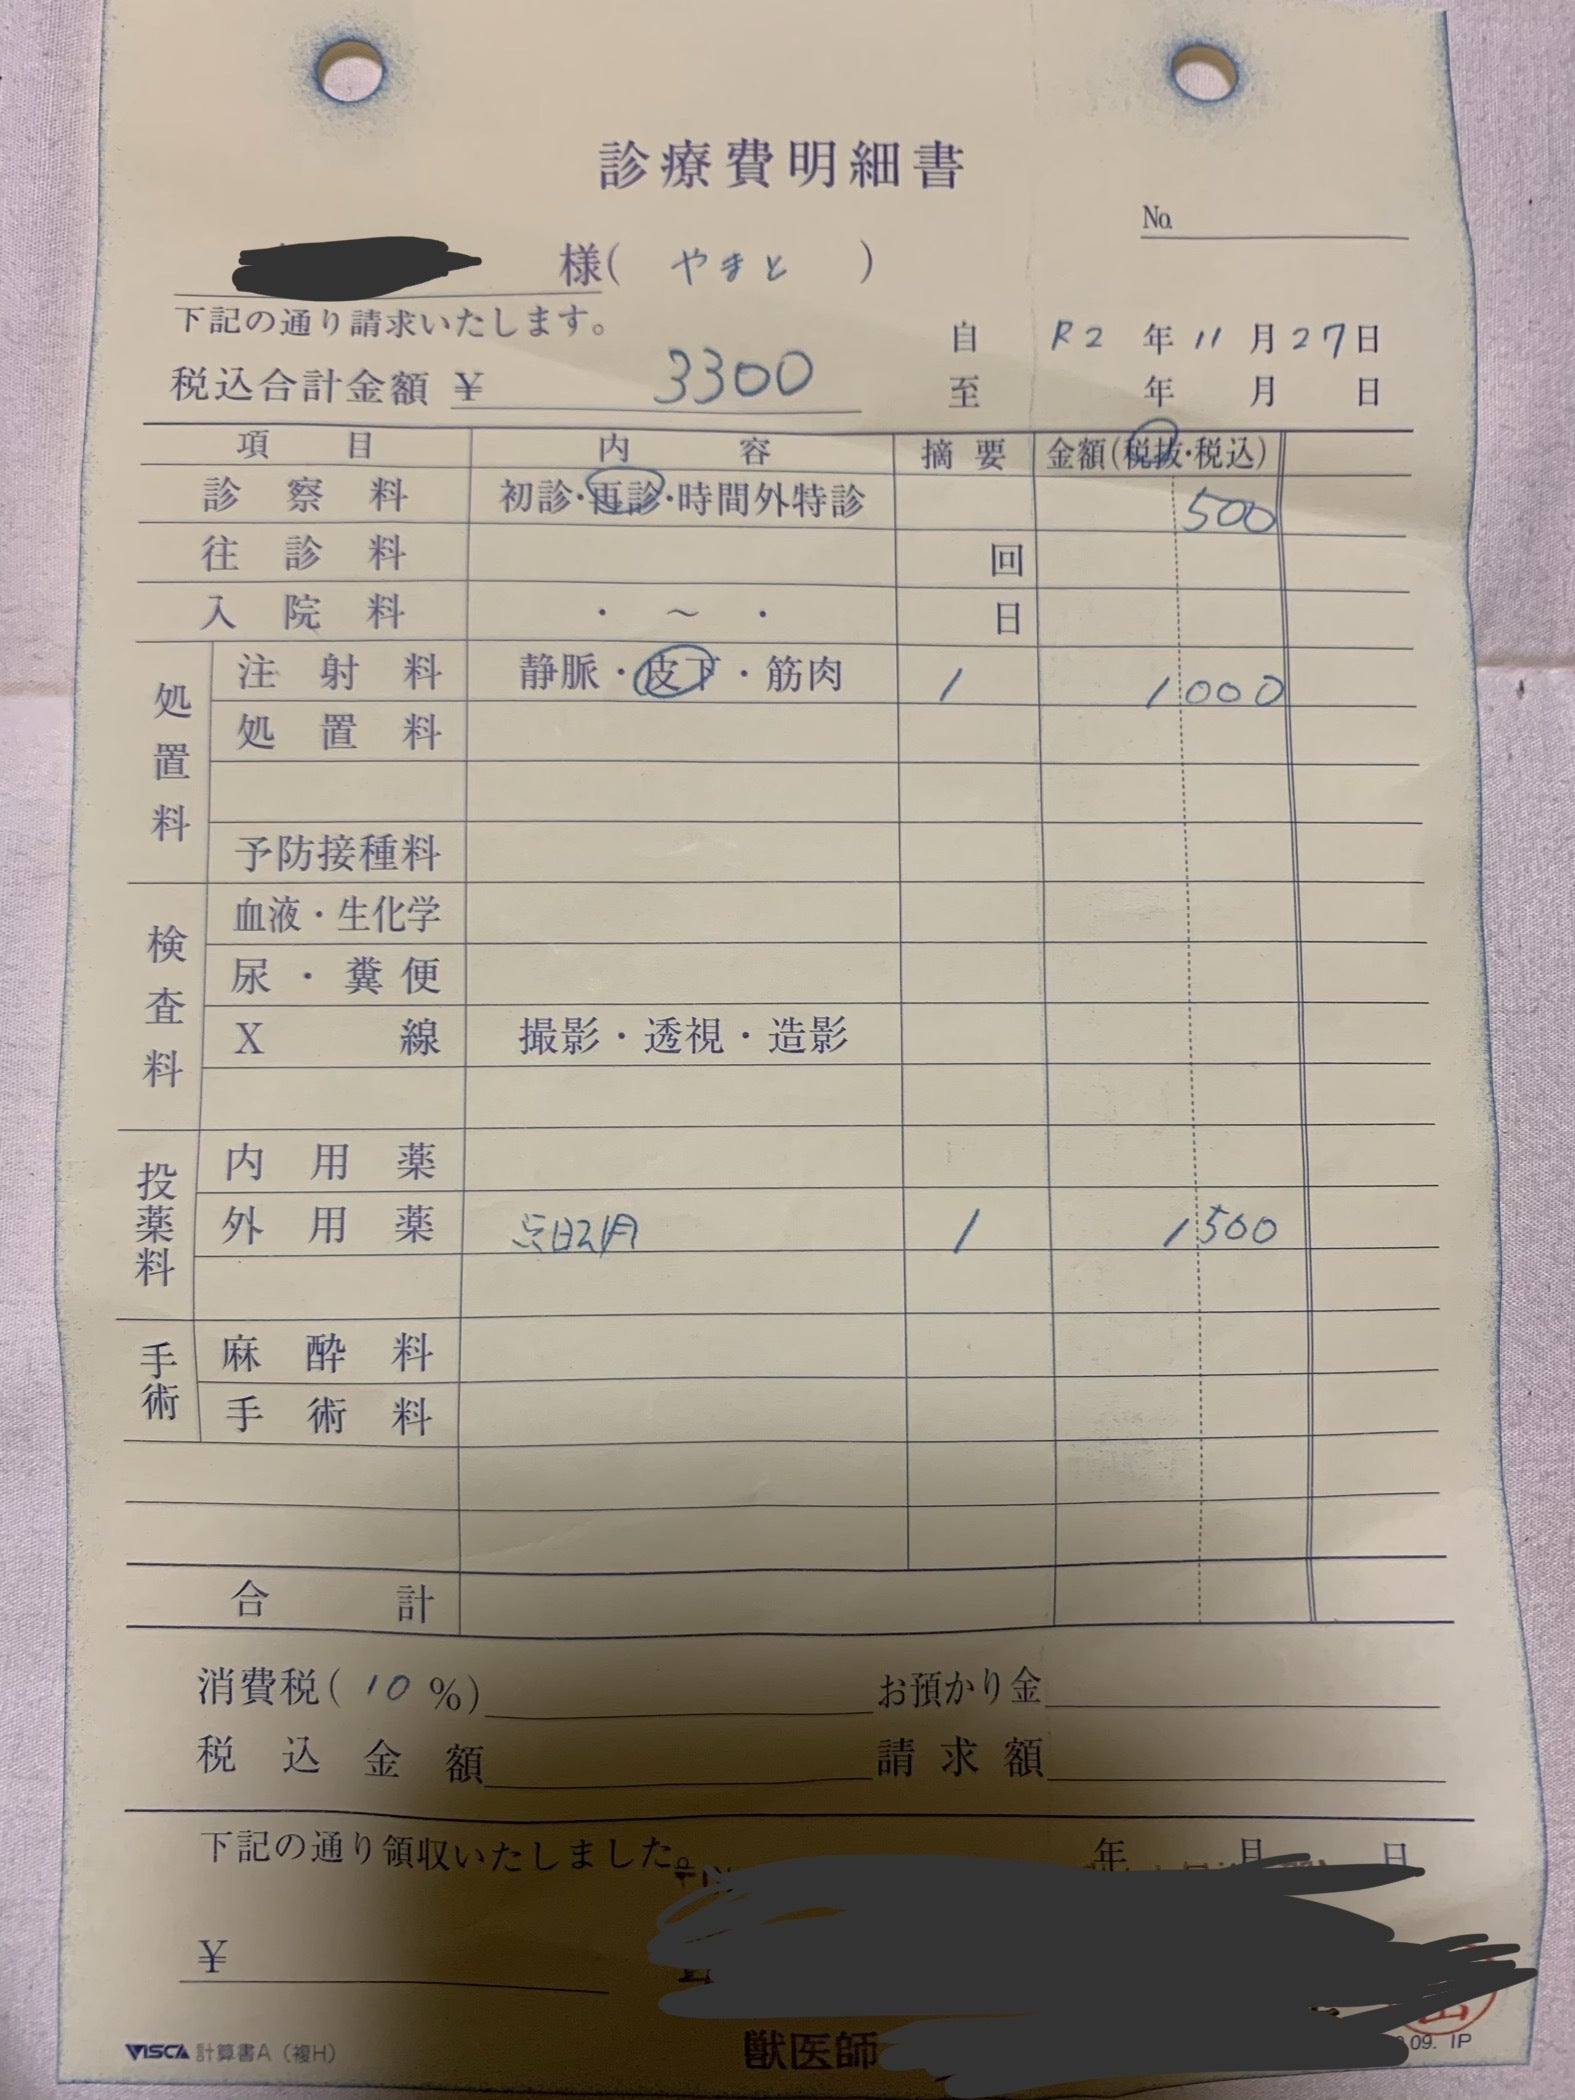 診療費明細書
No.
様( やまと )
下記の通り請求いたします。
自 R2年11月27日
税込合計金額 ¥ 3300
至 年 月 日
項目 内容 摘要 金額(税抜・税込)
診察料 初診・再診・時間外特診 500
往診料 回
入院料 ・ ～ ・ 日
処置料
注射料 静脈・皮下・筋肉 1 1000
処置料
予防接種料
検査料
血液・生化学
尿・糞便
X線 撮影・透視・造影
投薬料
内用薬
外用薬 点眼 1 1500
手術
麻酔料
手術料
合計
消費税(10%) お預かり金
税込金額 請求額
下記の通り領収いたしました。 年 月 日
¥
獣医師
VISCA 計算書A(複H)
09. IP